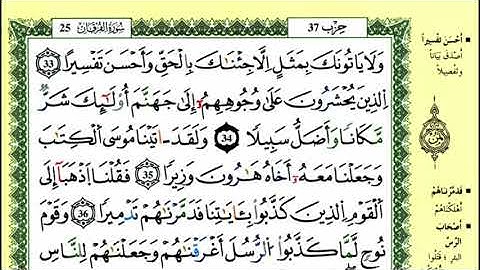 سُورَةُ الفُرْقَان 25
حزب 37
وَلَا يَأْتُونَكَ بِمَثَلٍ إِلَّا جِئْنَاكَ بِالْحَقِّ وَأَحْسَنَ تَفْسِيرًا 33
الَّذِينَ يُحْشَرُونَ عَلَى وُجُوهِهِمُ إِلَى جَهَنَّمَ أُوْلَٰئِكَ شَرٌّ
مَّكَانًا وَأَضَلُّ سَبِيلًا 34 وَلَقَدَ اتَيْنَا مُوسَى الْكِتَابَ
وَجَعَلْنَا مَعَهُ أَخَاهُ هَارُونَ وَزِيرًا 35 فَقُلْنَا اَذْهَبَا إِلَى
الْقَوْمِ الَّذِينَ كَذَّبُوا بِـَٔايَاتِنَا فَدَمَّرْنَاهُمْ تَدْمِيرًا 36 وَقَوْمَ
نُوحٍ لَّمَّا كَذَّبُوا الرُّسُلَ أَغْرَقْنَاهُمْ وَجَعَلْنَاهُمْ لِلنَّاسِ
أَحْسَنَ تَفْسِيراً
أَصْدَقَ بَيَاناً
وَتَفْصِيلاً
فَدَمَّرْنَاهُمْ
أَهْلَكْنَاهُمْ
أَصْحَابَ
الرَّسِّ
البئر؛ قَتَلُوا